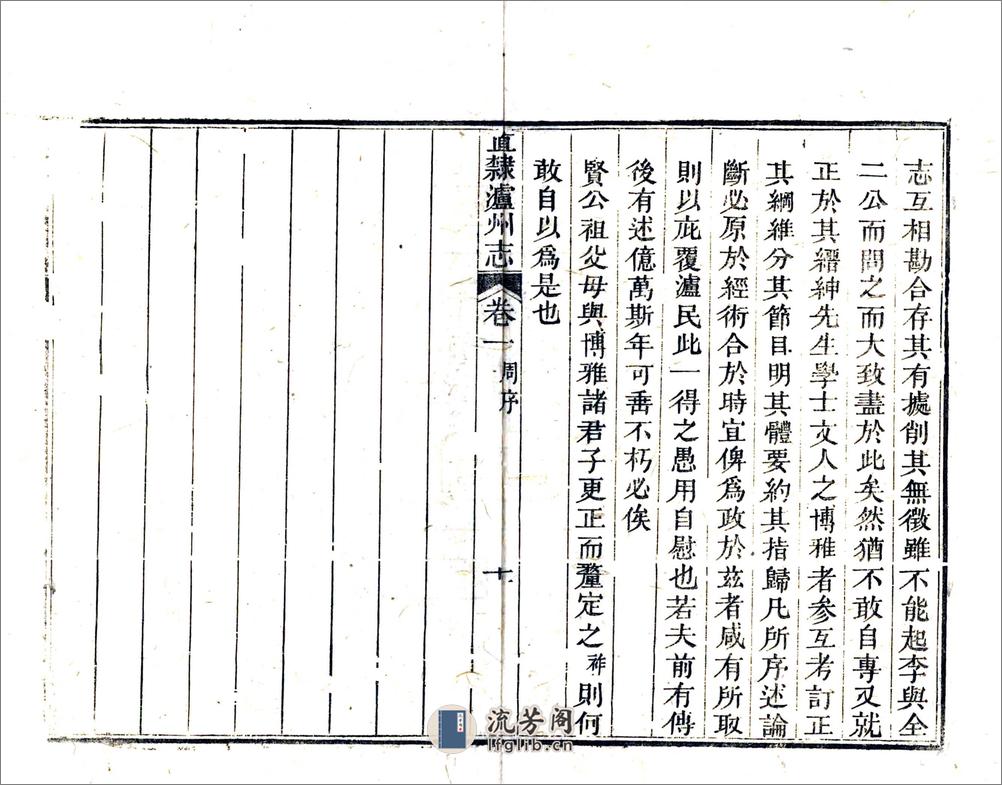 志互相勘合存其有據削其無徵雖不能起李與全
二公而問之而大致盡於此矣然猶不敢自專又就
正於其縉紳先生學士文人之博雅者參互考訂正
其綱維分其節目明其體要約其指歸凡所序述論
斷必原於經術合於時宜俾爲政於茲者咸有所取
則以庇覆瀘民此一得之愚用自慰也若夫前有傳
後有述億萬斯年可垂不朽必俟
賢公祖父母與博雅諸君子更正而釐定之祚則何
敢自以爲是也
直隸瀘州志
卷一
周序
十
流芳阁
lfglib.cn